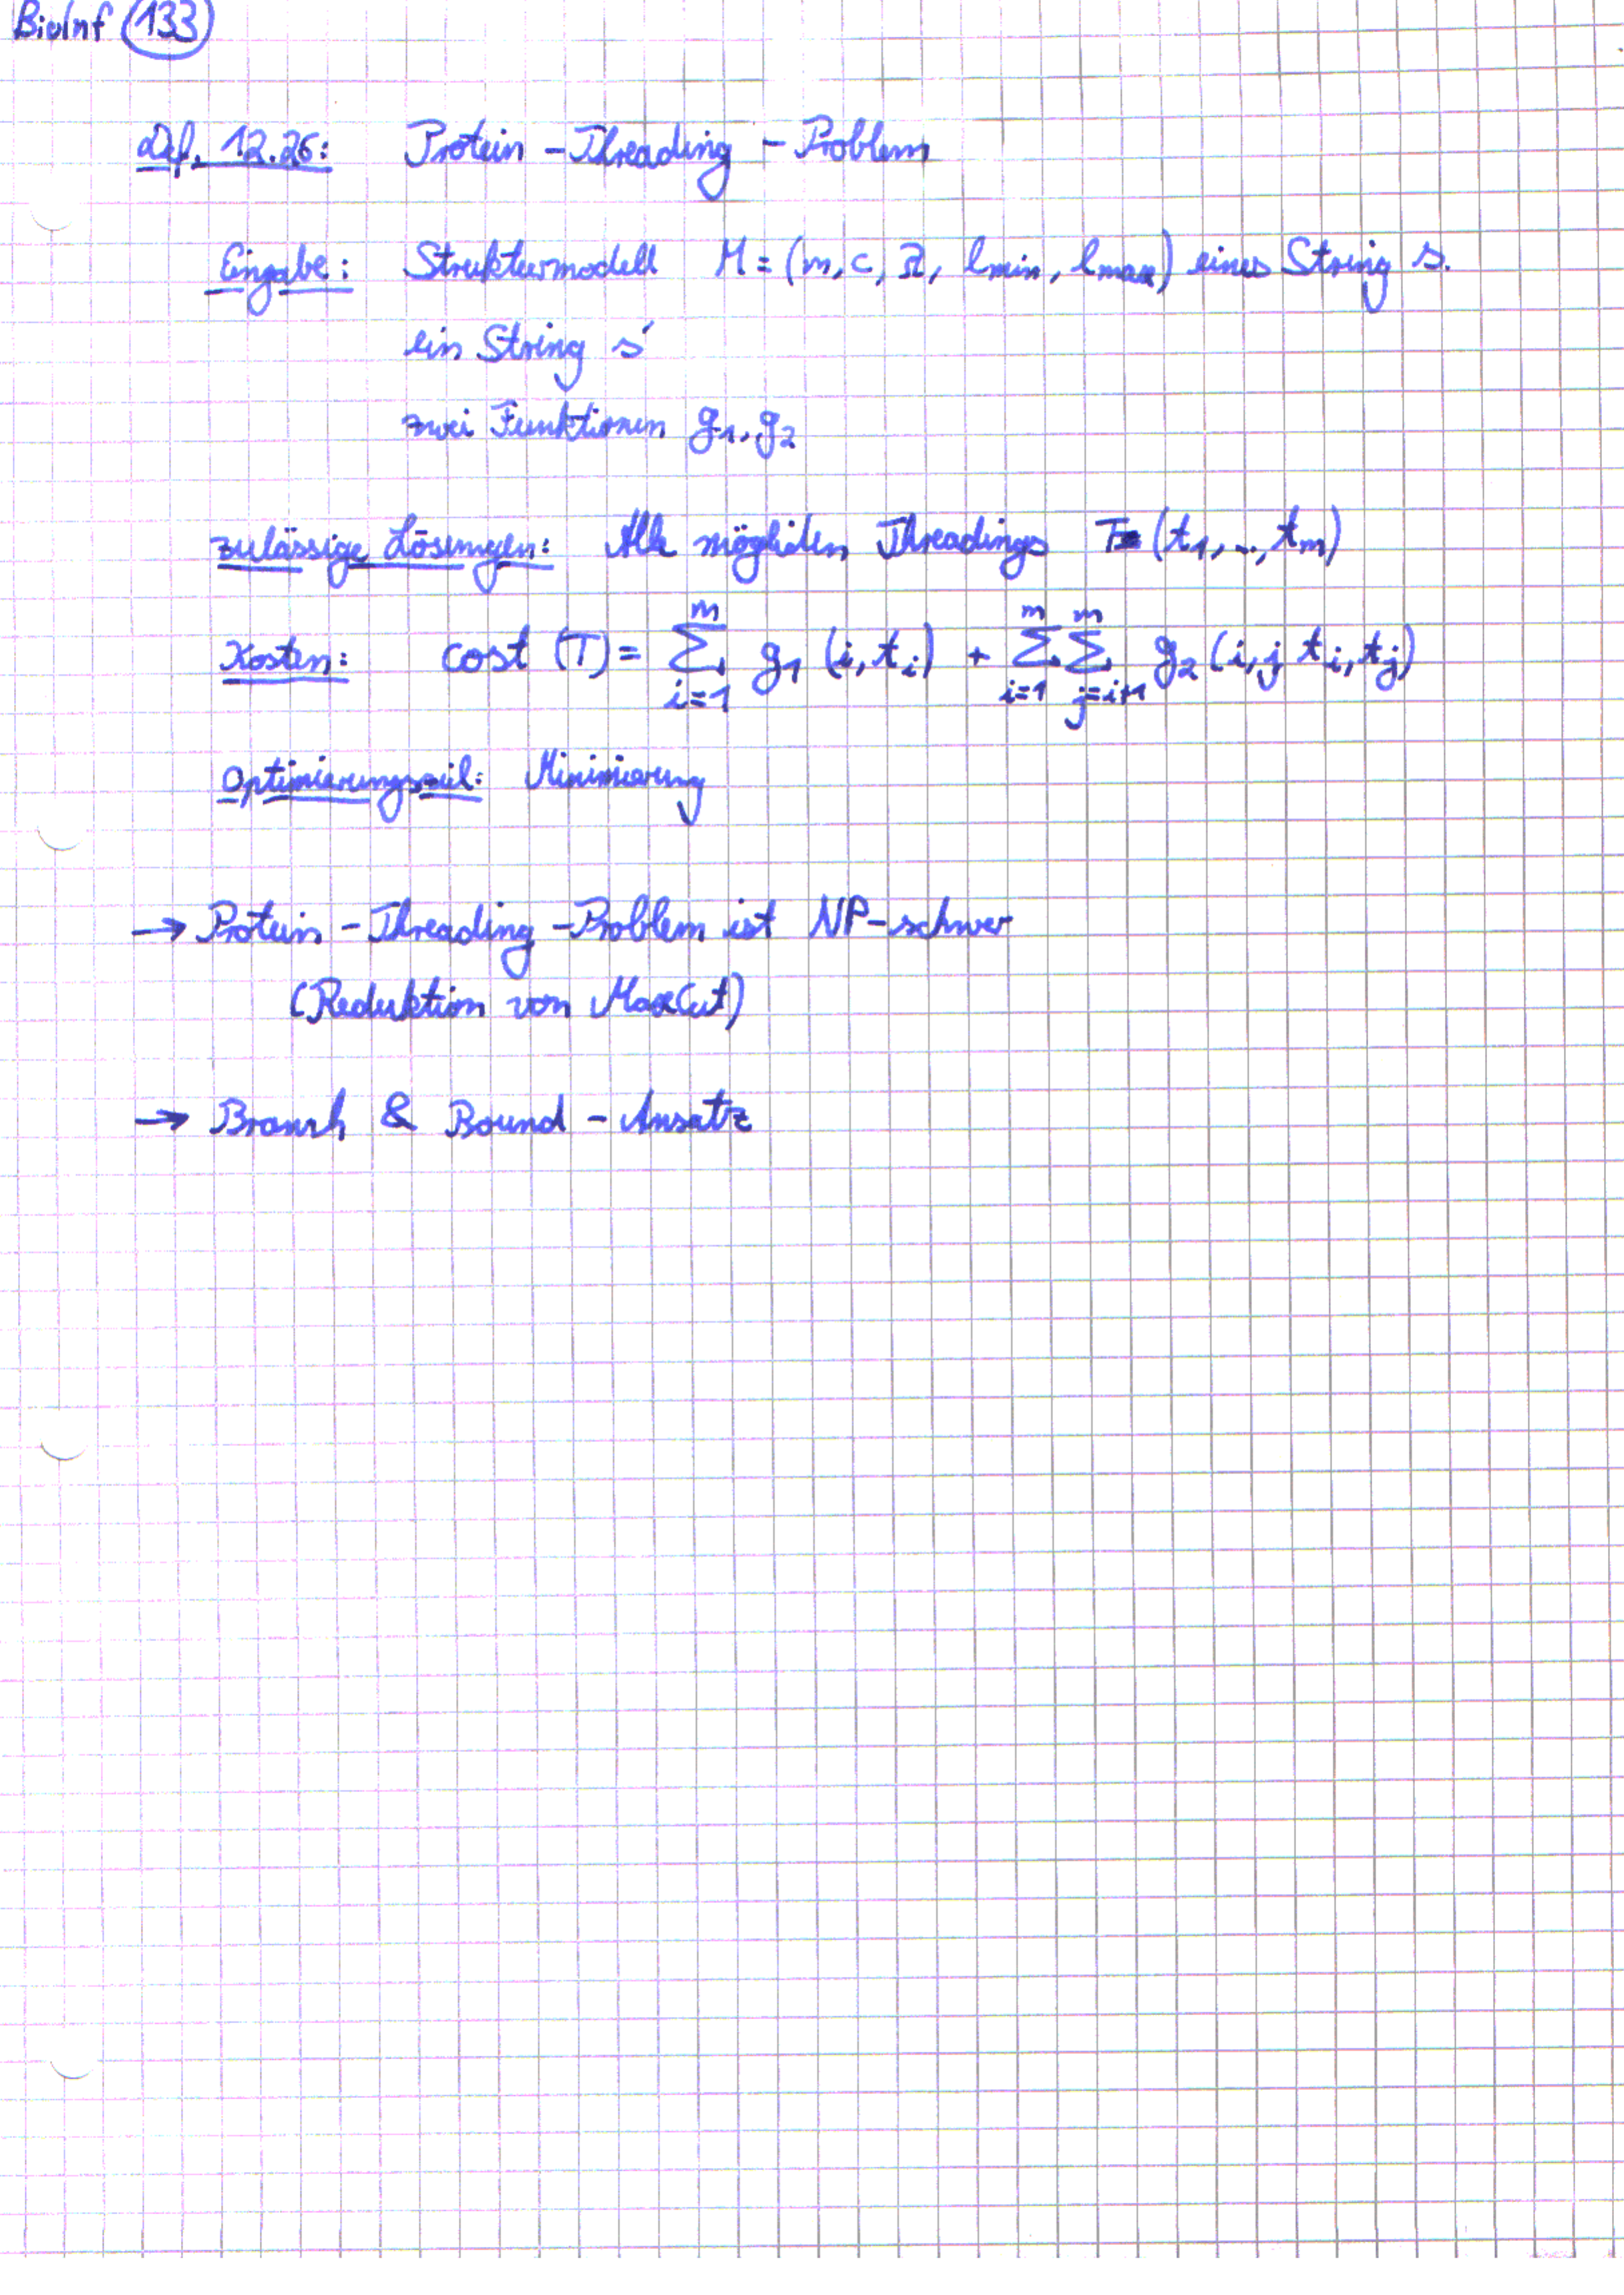 BioInf 133
Def. 12.26: Protein-Threading-Problem
Eingabe: Strukturmodell M = (m, c, λ, lmin, lmax) eines String s.
ein String s'
zwei Funktionen g1, g2
zulässige Lösungen: Alle möglichen Threadings T = (t1, .., tm)
Kosten: cost (T) = ∑_{i=1}^{m} g1 (i, ti) + ∑_{i=1}^{m} ∑_{j=i+1}^{m} g2 (i, j ti, tj)
Optimierungsziel: Minimierung
→ Protein-Threading-Problem ist NP-schwer
(Reduktion von MaxCut)
→ Branch & Bound - Ansatz